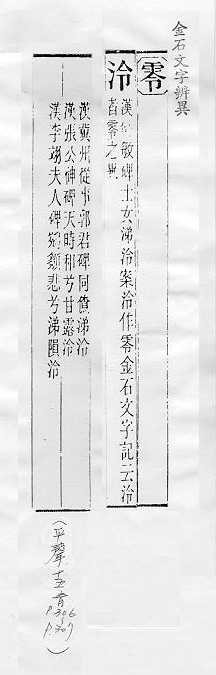 金石文字辨異
零
泠
漢 敏碑士女涕泠案泠作零金石文字記云泠
者零之異
漢冀州從事郭君碑同僚涕泠
漢張公神碑天時和兮甘露泠
漢李翊夫人碑 顏悲兮涕隕泠
(平聲十五青
P.306
P.307)